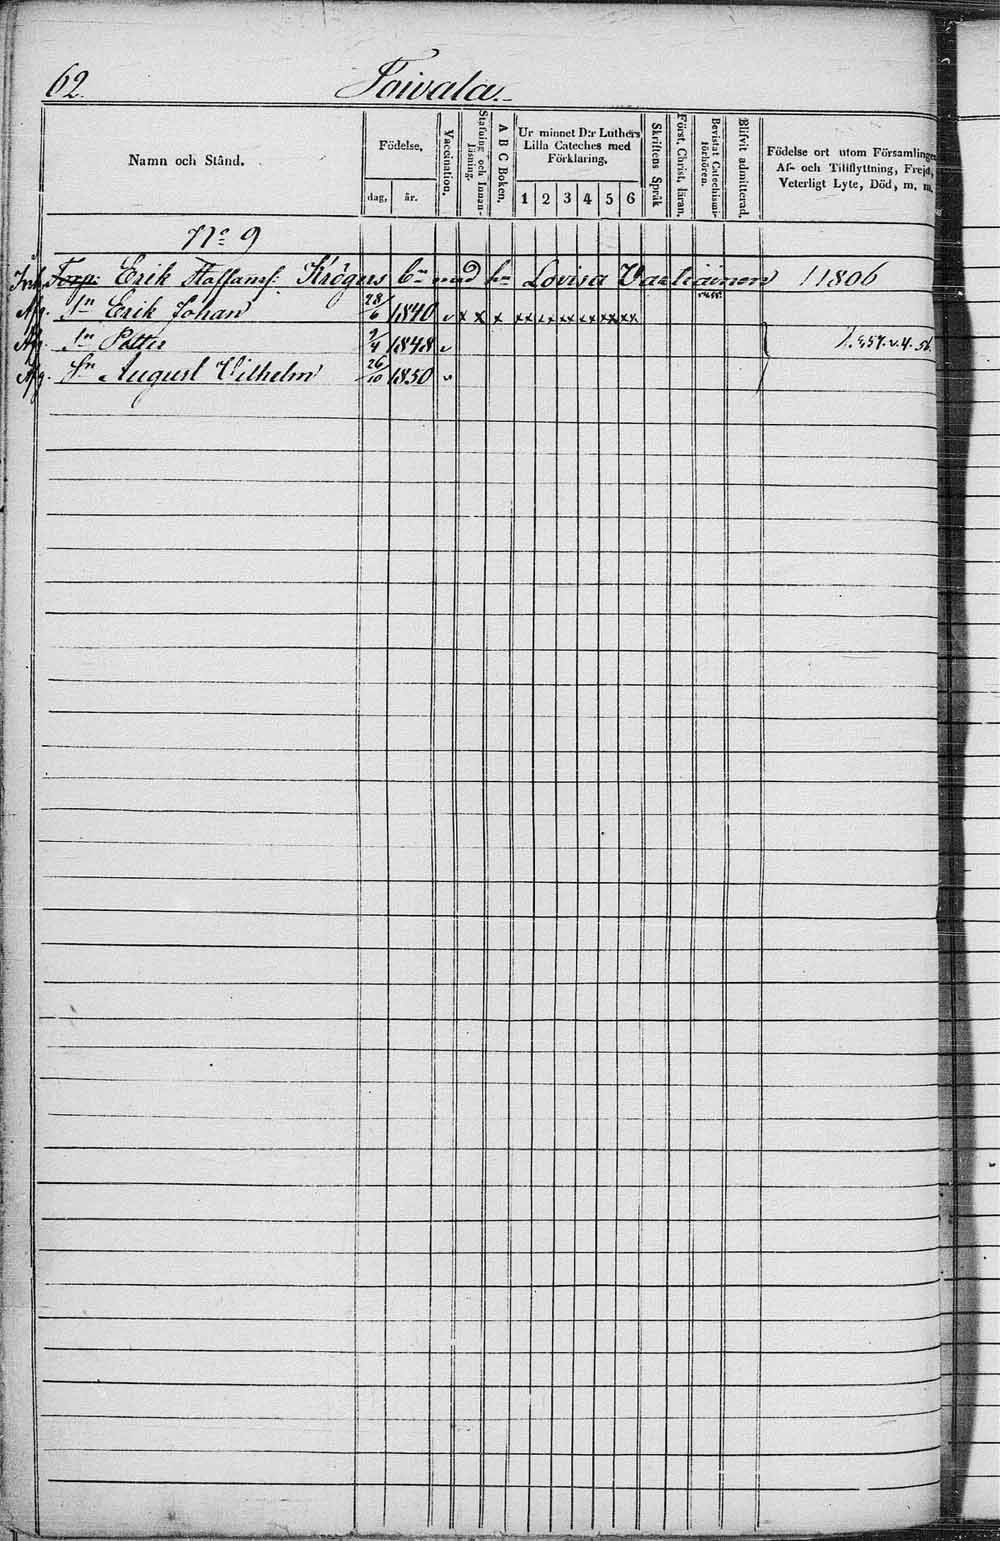 62.
Toivala.
Namn och Stånd.
Födelse,
dag,
år.
Vaccination.
Stafning och Innan-
läsning.
A B C Boken.
Ur minnet D:r Luthers
Lilla Cateches med
Förklaring,
1 2 3 4 5 6
Skriftens Språk
Först. Christ. läran.
Bevistat Catechismi-
förhören.
Blifvit admitterad.
Födelse ort utom Församlingen
Af- och Tillflyttning, Frejd,
Veterligt Lyte, Död, m. m.
No 9
Inh. Torp: Erik Staffansf: Krögus bn med hu Lovisa Vartiainen 11806
Afg. Sn Erik Johan 28/6 1840 v x x x xx xx xx xx xx xx
Afg. Sn Petter 2/4 1848 v
Afg. Sn August Vilhelm 26/10 1850 v